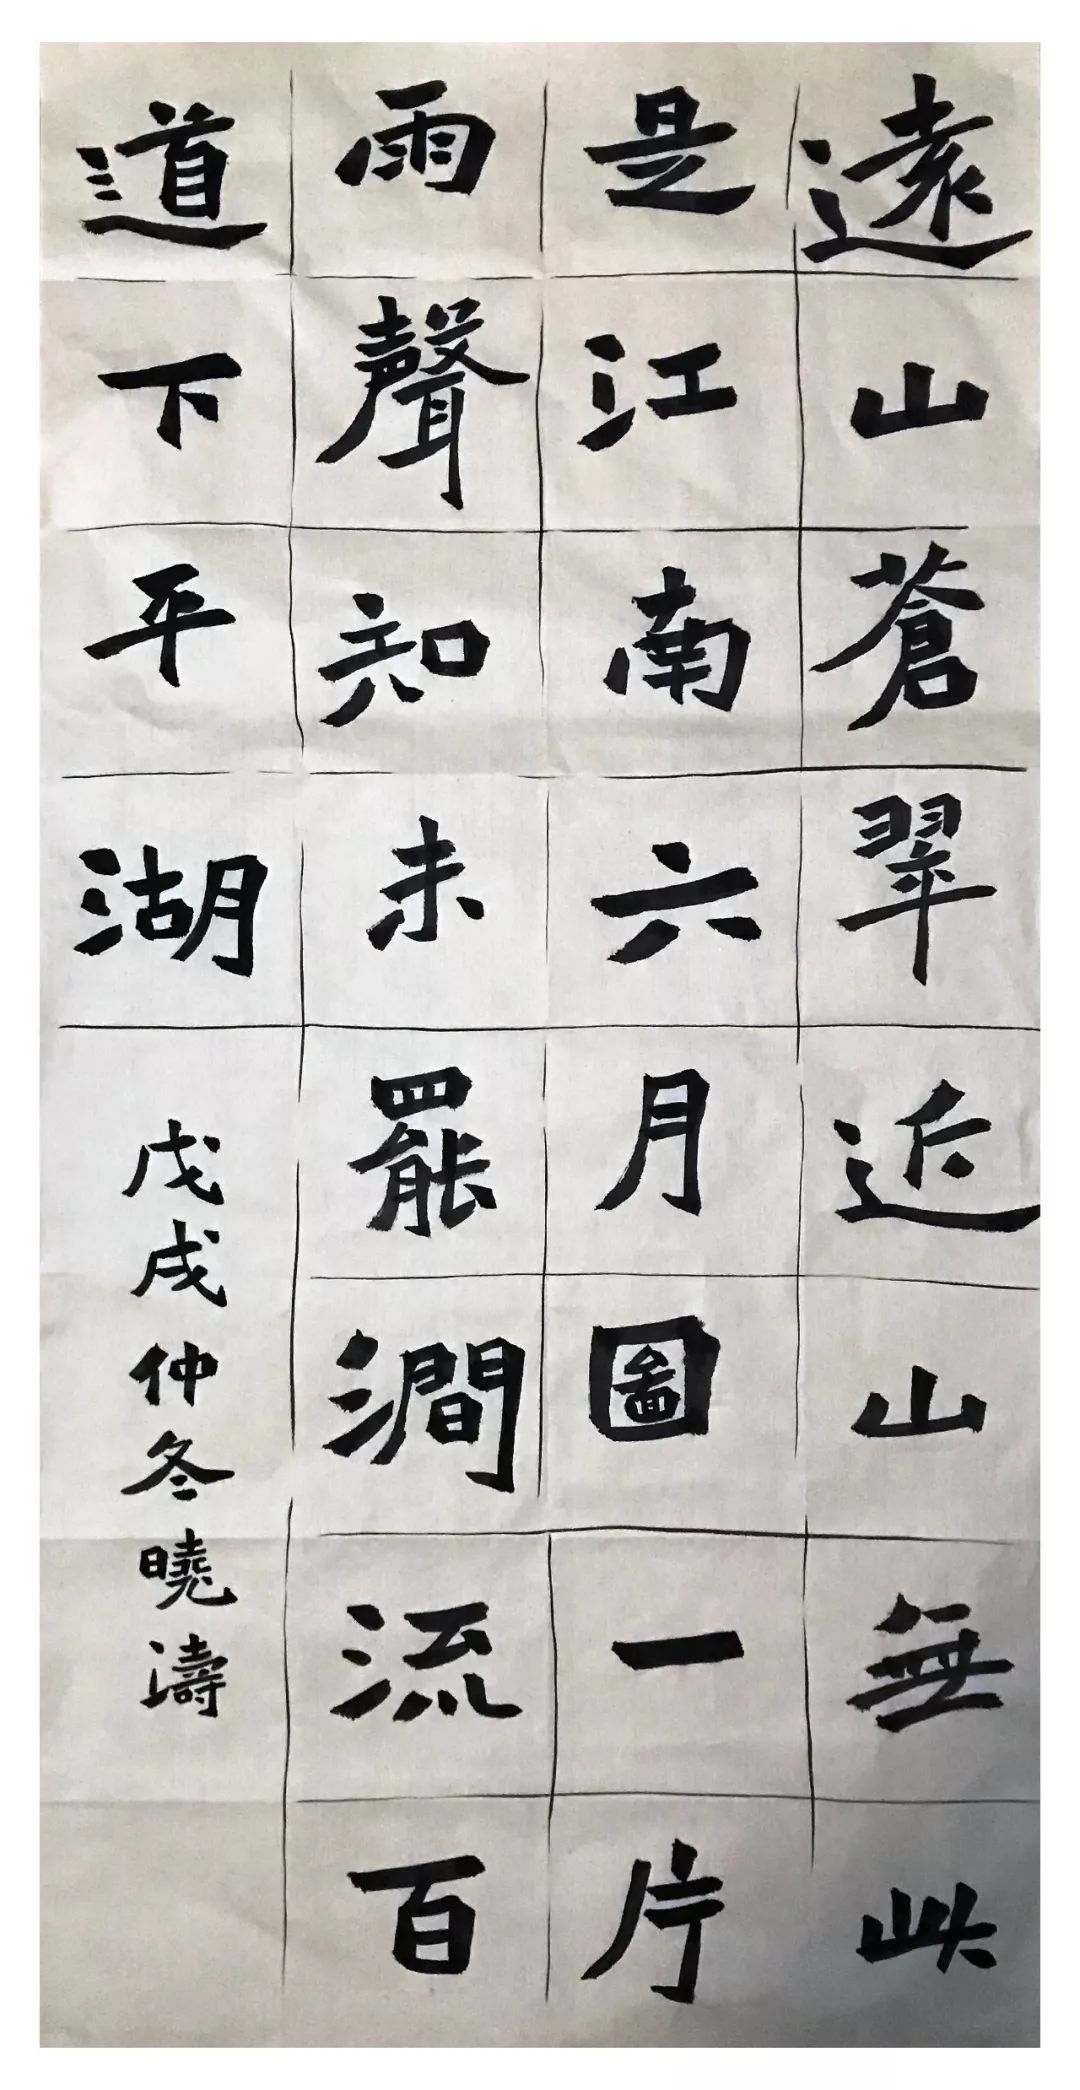 遠山蒼翠近山無此
是江南六月圖一片
雨聲知未罷澗流百
道下平湖
戊戌仲冬曉濤